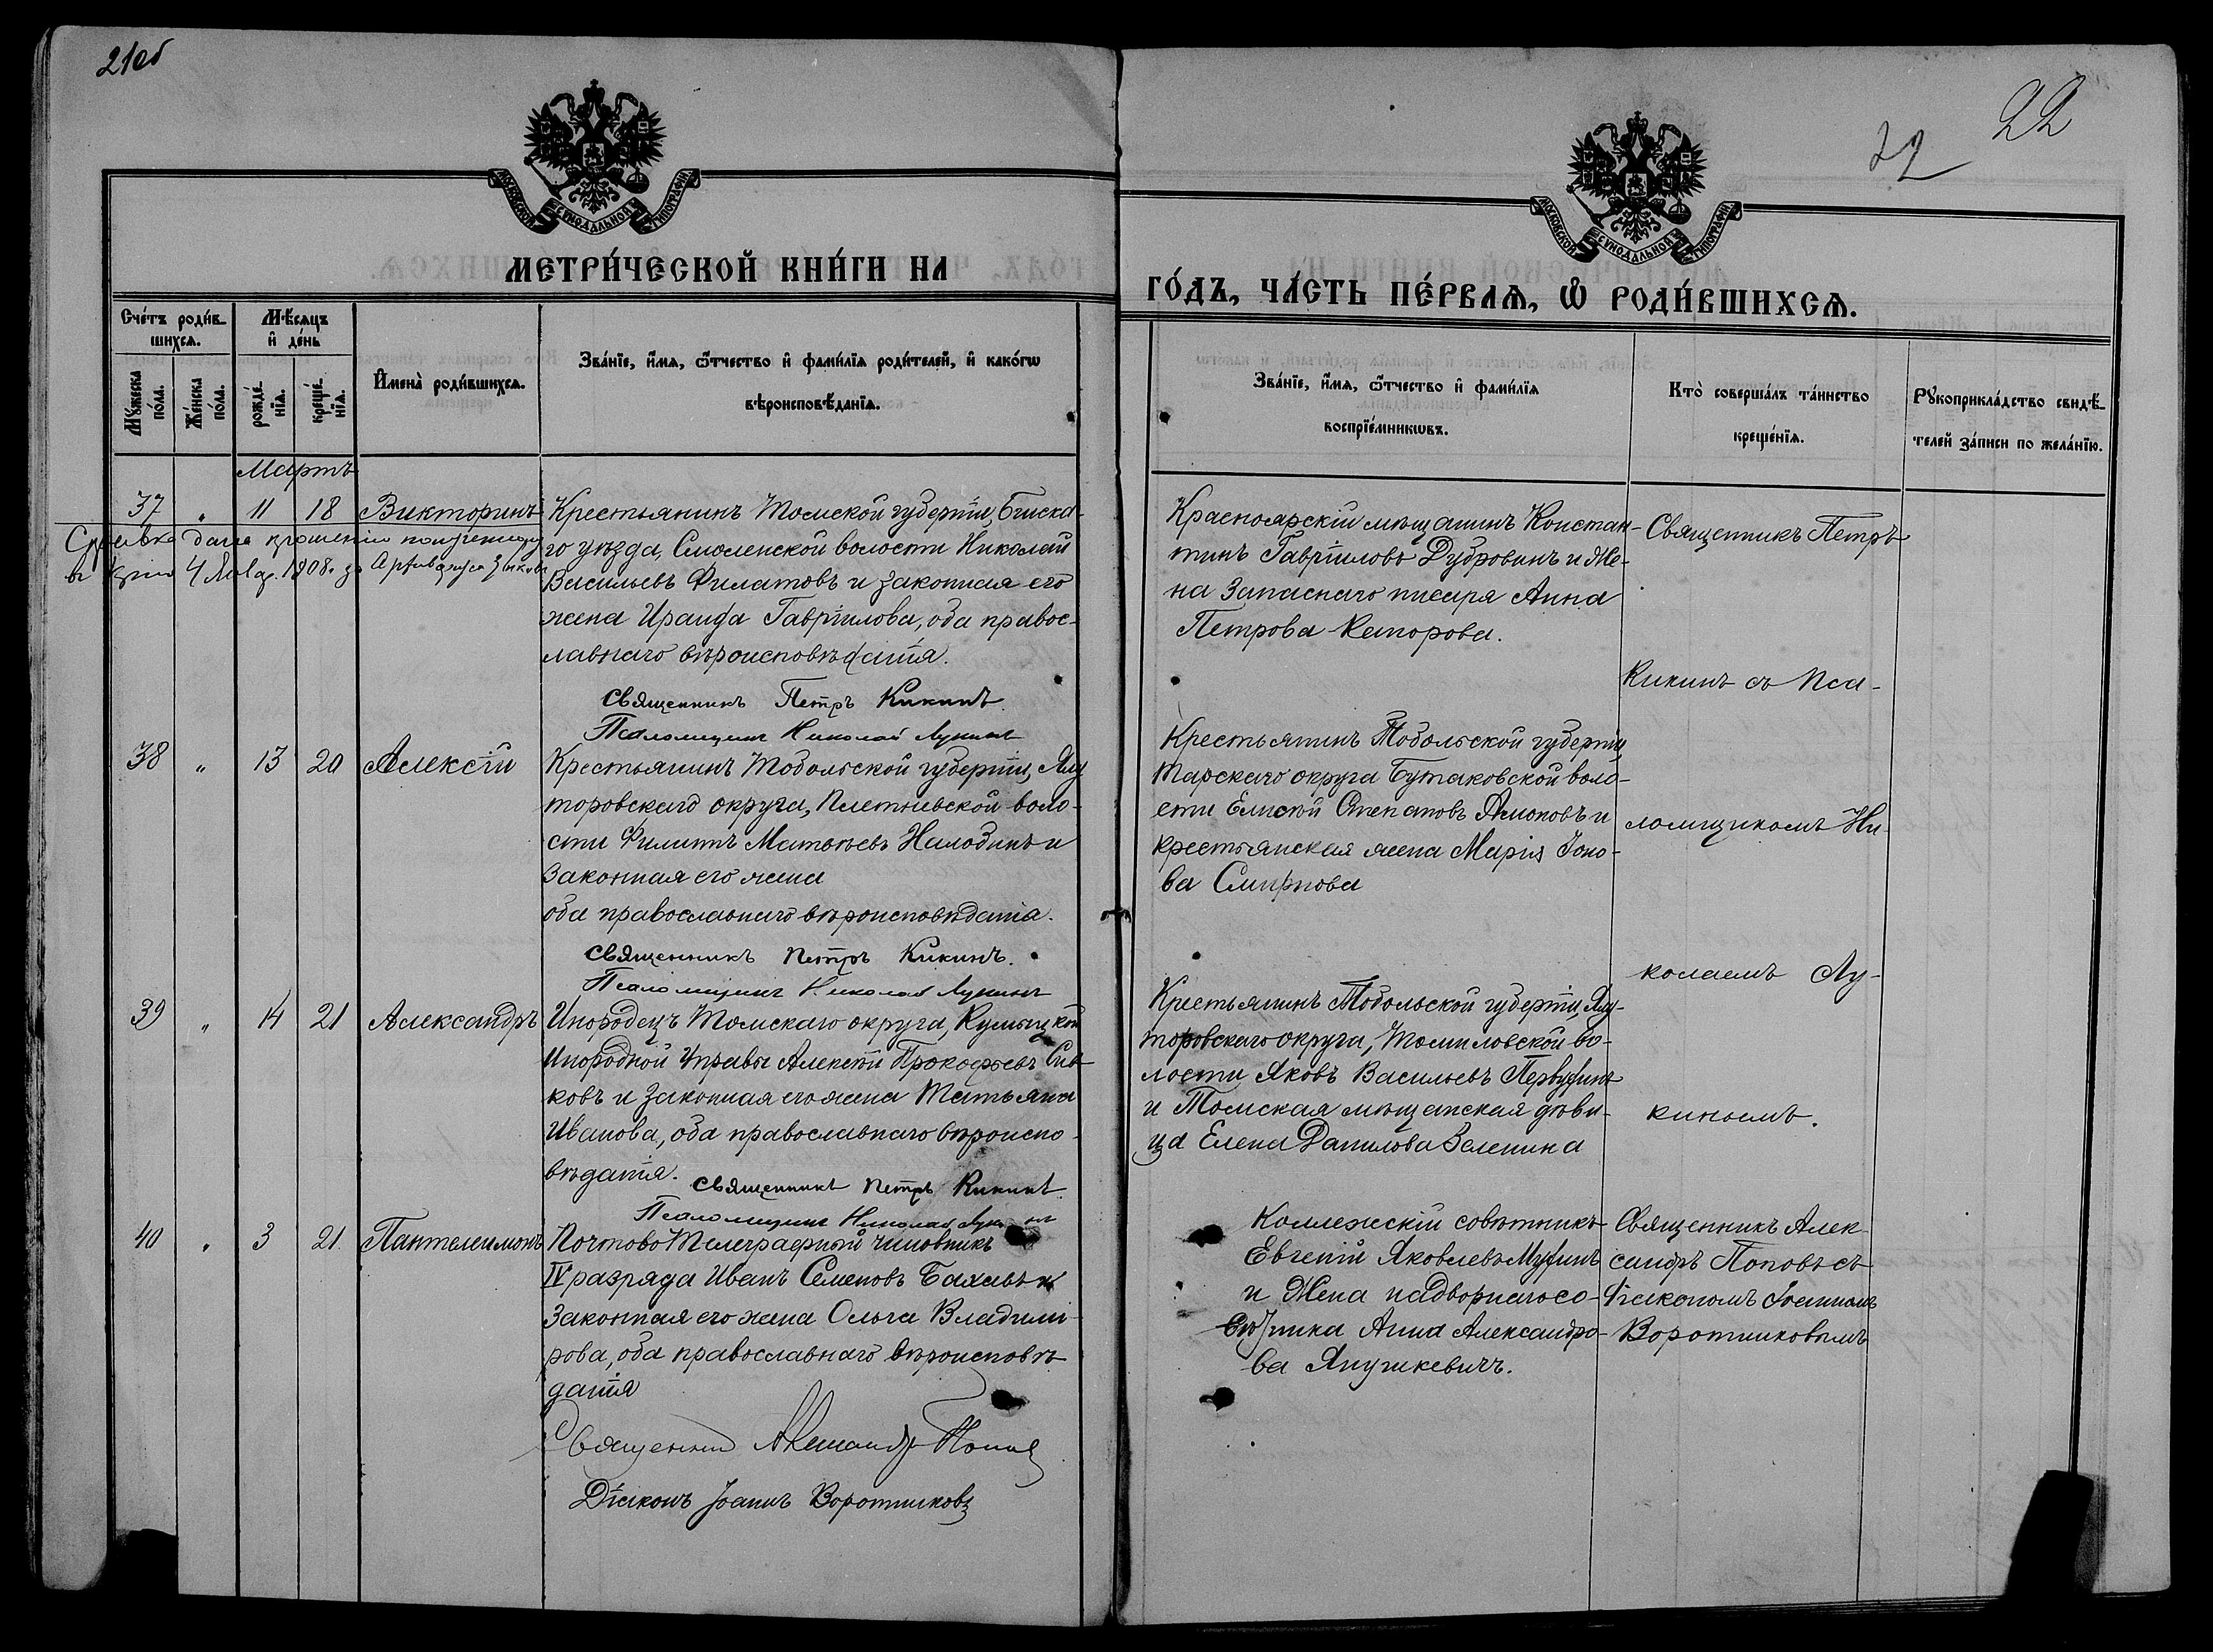 21об
22
22
МОСКОВСКОЙ СѴНОДАЛЬНОЙ ТИПОГРАФІИ
МОСКОВСКОЙ СѴНОДАЛЬНОЙ ТИПОГРАФІИ
МЕТРИ́ЧЕСКОЙ КНИ́ГИ НА
ГО́ДЪ, ЧА́СТЬ ПЕ́РВАѦ, Ѡ҆ РОДИ́ВШИХСѦ.
Сче́тъ роди́в-
шихсѧ.
Мѣ́сѧцъ
и҆ де́нь
Мꙋ́жеска по́ла.
Же́нска по́ла.
рожде́-
нїѧ.
креще́-
нїѧ.
И҆мена̀ роди́вшихсѧ.
Зва́нїе, и҆́мѧ, ѻ҆́тчество и҆ фами́лїѧ роди́телей, и҆ како́гѡ
вѣроисповѣ́данїѧ.
Зва́нїе, и҆́мѧ, ѻ҆́тчество и҆ фами́лїѧ
воспрїе́мникѡвъ.
Кто̀ соверша́лъ та́инство
креще́нїѧ.
Рꙋкоприкла́дство свидѣ́-
телей за́писи по жела́нїю.
Мартъ
37 " 11 18 Викторинъ
Крестьянинъ Томской губерніи, Бійска-
го уѣзда, Смоленской волости Николай
Васильевъ Филатовъ и законная его
жена Ираида Гавріилова, оба правос-
лавнаго вѣроисповѣданія.
Справка дана
4 1908 г. за
Священникъ Петръ Кикинъ.
Псаломщикъ Николай Лукинъ
Красноярскій мѣщанинъ Констан-
тинъ Гавріиловъ Дубровинъ и же-
на запаснаго писаря Анна
Петрова Капорова.
Священникъ Петръ
Кикинъ съ Пса-
ломщикомъ Ни-
колаемъ Лу-
кинымъ.
38 " 13 20 Алексій
Крестьянинъ Тобольской губерніи, Ялу
торовскаго округа, Плетневской воло-
сти Филиппъ Матвѣевъ Налобинъ и
законная его жена
оба православнаго вѣроисповѣданія.
Священникъ Петръ Кикинъ.
Псаломщикъ Николай Лукинъ
Крестьянинъ Тобольской губерніи,
Тарскаго округа Бутаковской воло-
сти Елисей Степановъ и
крестьянская жена Марія Іоно-
ва Смирнова
39 " 14 21 Александръ
Инородецъ Томскаго округа, Кумышской
Инородной Управы Алексѣй Прокофьевъ Сив-
ковъ и законная его жена Татьяна
Иванова, оба православнаго вѣроиспо-
вѣданія.
Священникъ Петръ Кикинъ.
Псаломщикъ Николай Лукинъ
Крестьянинъ Тобольской губерніи, Ялу-
торовскаго округа, Томиловской во-
лости Яковъ Васильевъ Первухинъ
и Томская мѣщанская дѣви-
ца Елена Данилова Зеленина
40 " 3 21 Пантелеимонъ
Почтово Телеграфный чиновникъ
IV разряда Иванъ Семеновъ Бахавъ и
законная его жена Ольга Владими-
рова, оба православнаго вѣроисповѣ-
данія
Священникъ Александръ Поповъ
Діаконъ Іоаннъ Воротниковъ
Коллежскій совѣтникъ
Евгеній Яковлевъ Мухинъ
и Жена надворнаго со-
вѣтника Анна Александро-
ва Янушкевичъ.
Священникъ Алек-
сандръ Поповъ съ
діакономъ Іоанномъ
Воротниковымъ